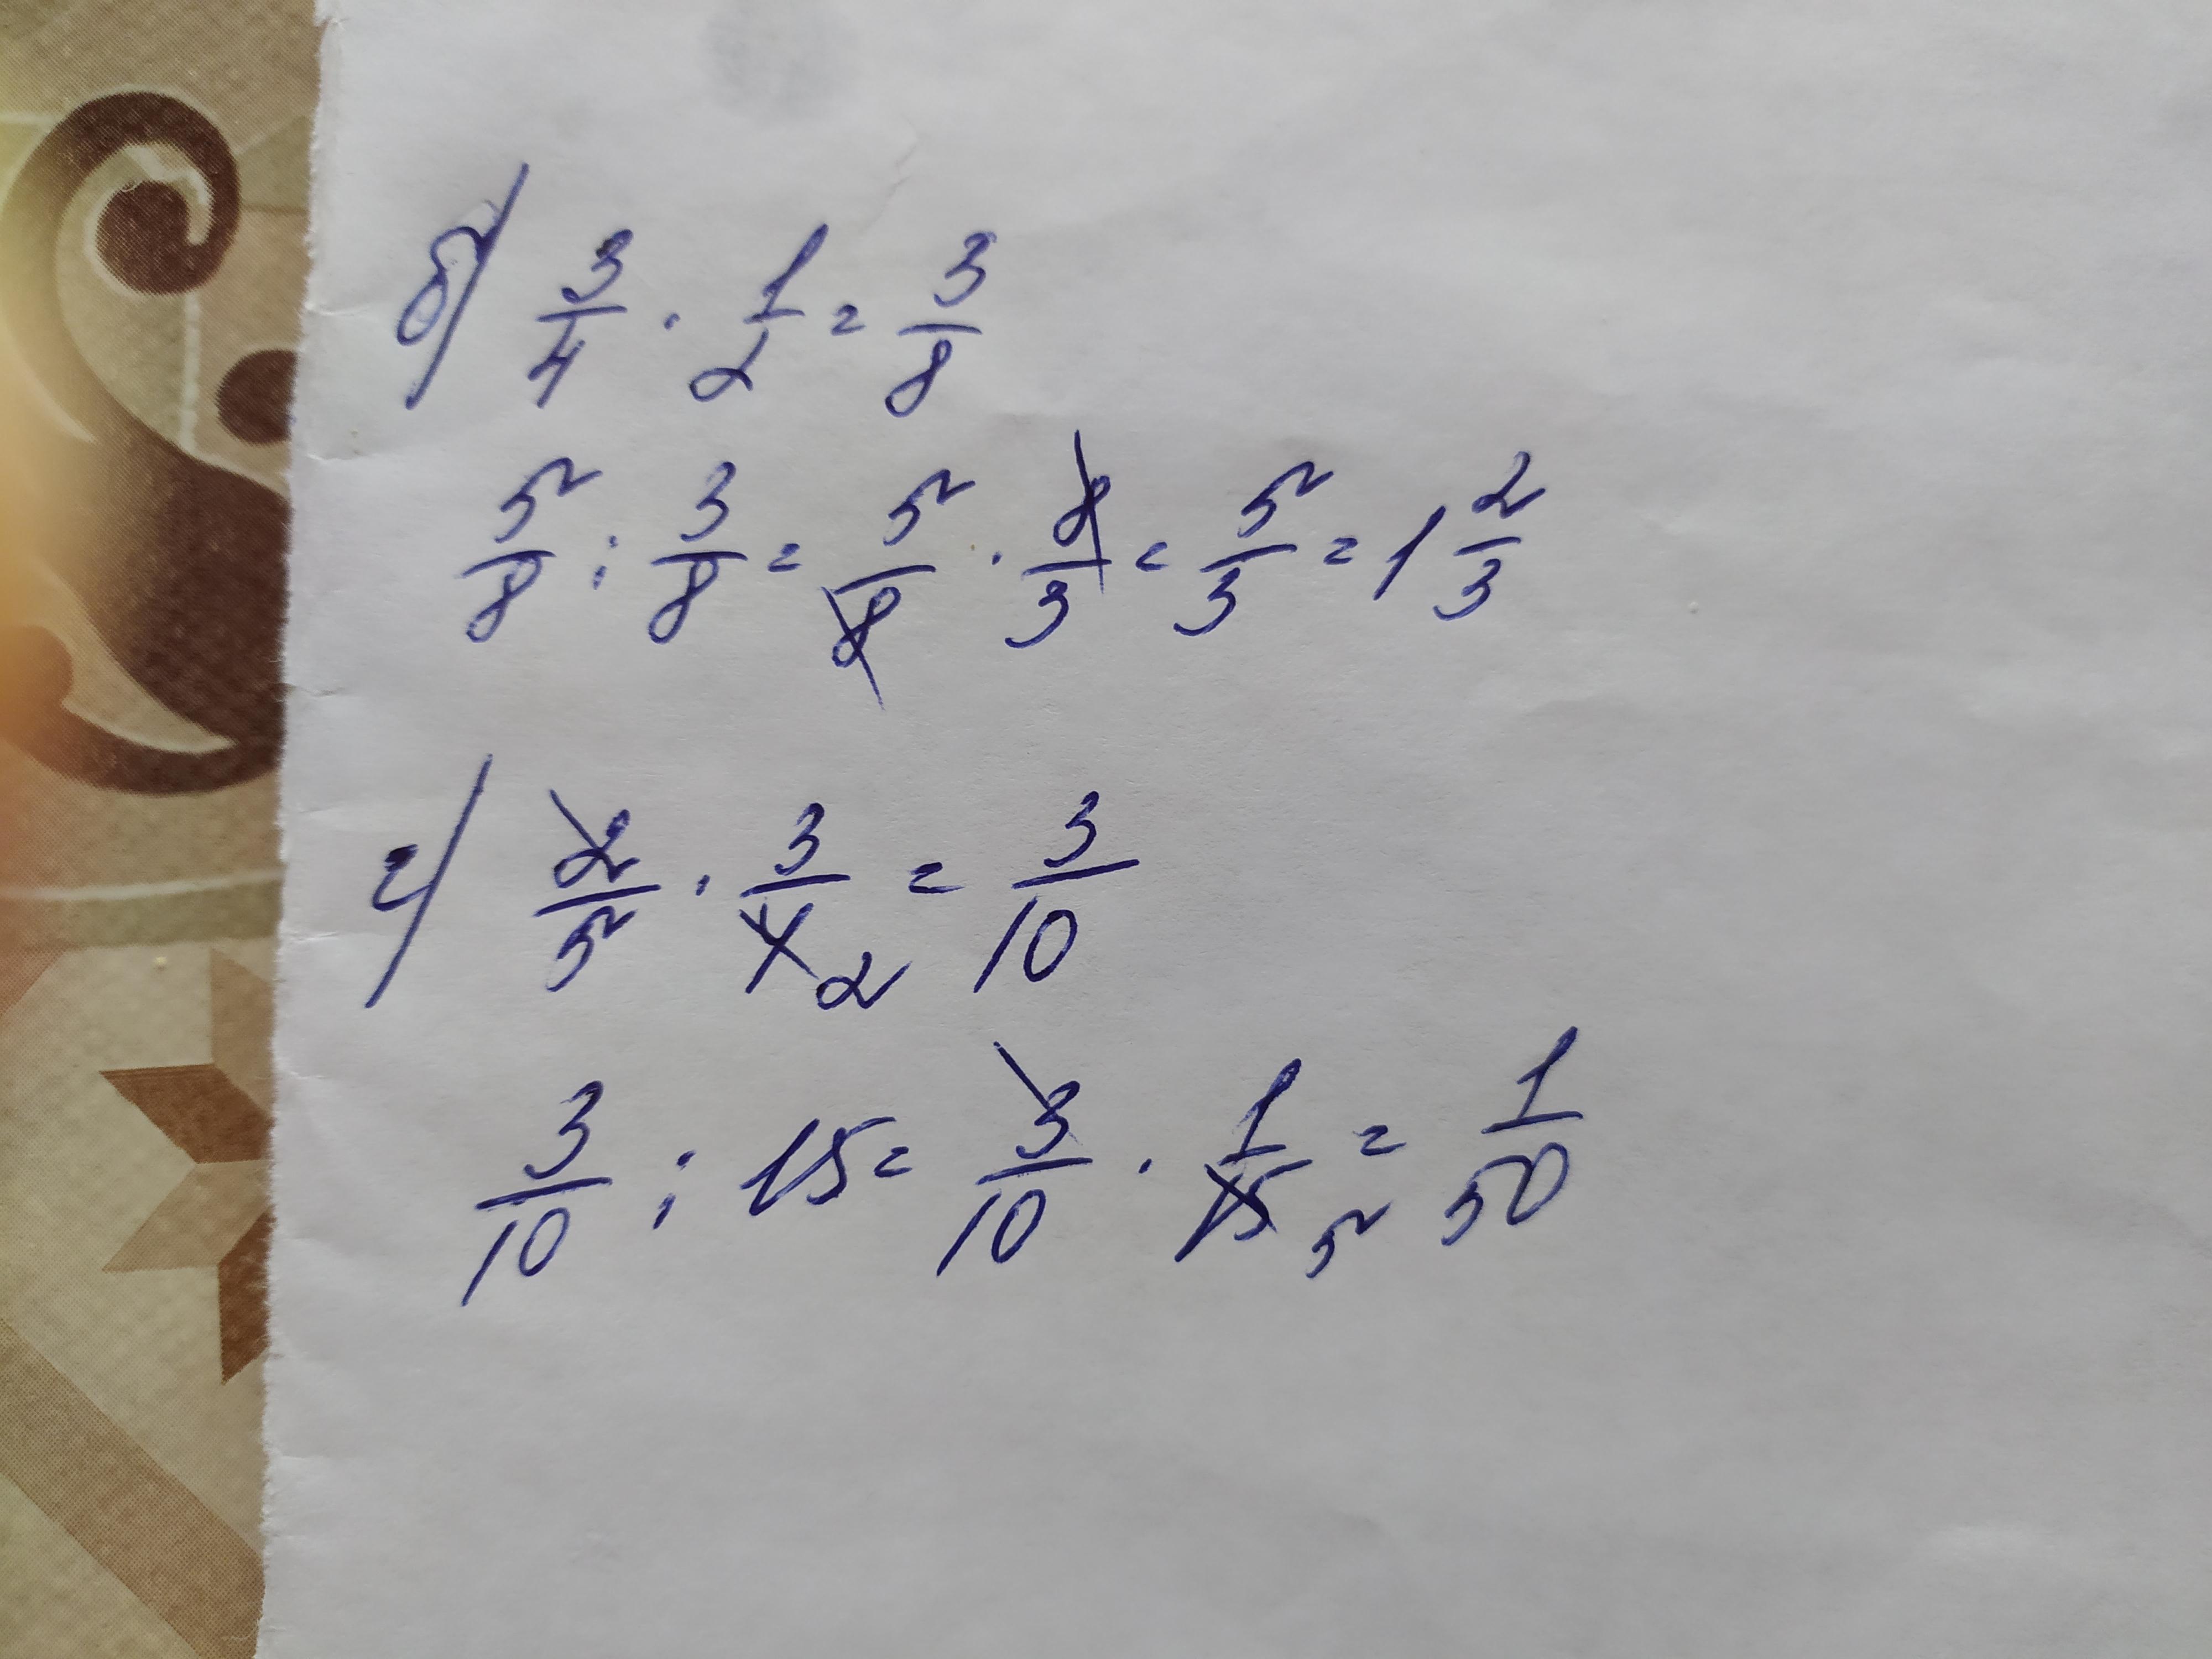 б) 3/4 · 1/2 = 3/8
5/8 : 3/8 = 5/8 · 8/3 = 5/3 = 1 2/3
г) 2/5 · 3/4 2 = 3/10
3/10 : 15 = 3/10 · 1/15 5 = 1/50